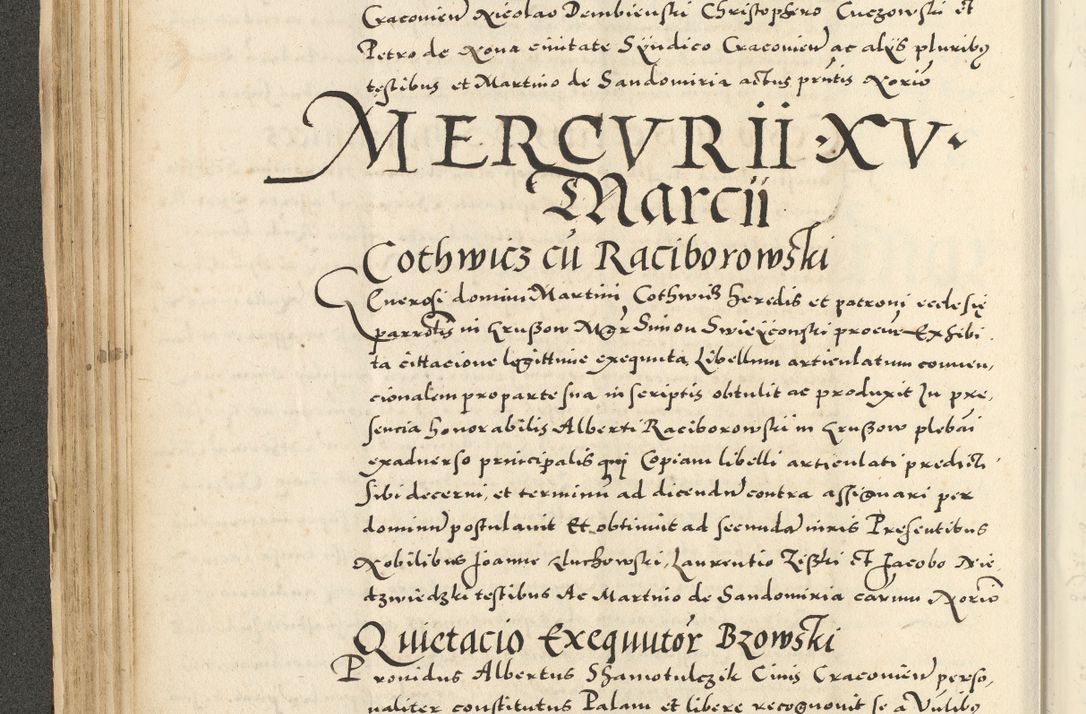 Cracovien̄ Nicolao Dembienski Christophero Cuczowski et
Petro de Nona civitate Syndico Cracovien̄ ac alijs pluribꝰ
testibus et Martino de Sandomiria actus pn̄tis Norio
MERCVRII · XV ·
Marcii
Cothwicz cū Raciborowski
Generosi domini Martini Cothwicz heredis et patroni ecclesię
parrotis in Gruszow Mgr Simon Swieyconski procur Exhibi
ta cittacione legittime exequuta Libellum articulatum conven,
cionalem pro parte sua in scriptis obtulit ac produxit In pre,
sencia honorabilis Alberti Raciborowski in Gruszow plebāi
exadverso principalis qui Copiam libelli articulati predicti
Sibi decerni, et terminū ad dicendū contra assignari per
dominū postulavit Et obtinuit ad secundā iuris Presentibus
Nobilibus Joanne Luchowski, Laurentio Ziski et Jacobo Nie,
dzwiedzki testibus Ac Martino de Sandomiria earum Norio
Quietacio Exequutor Bzowski
Providus Albertus Shamotulczik Civis Cracovien̄ perso,
naliter constitutus Palam et libere recognovit se a Vulibꝰ